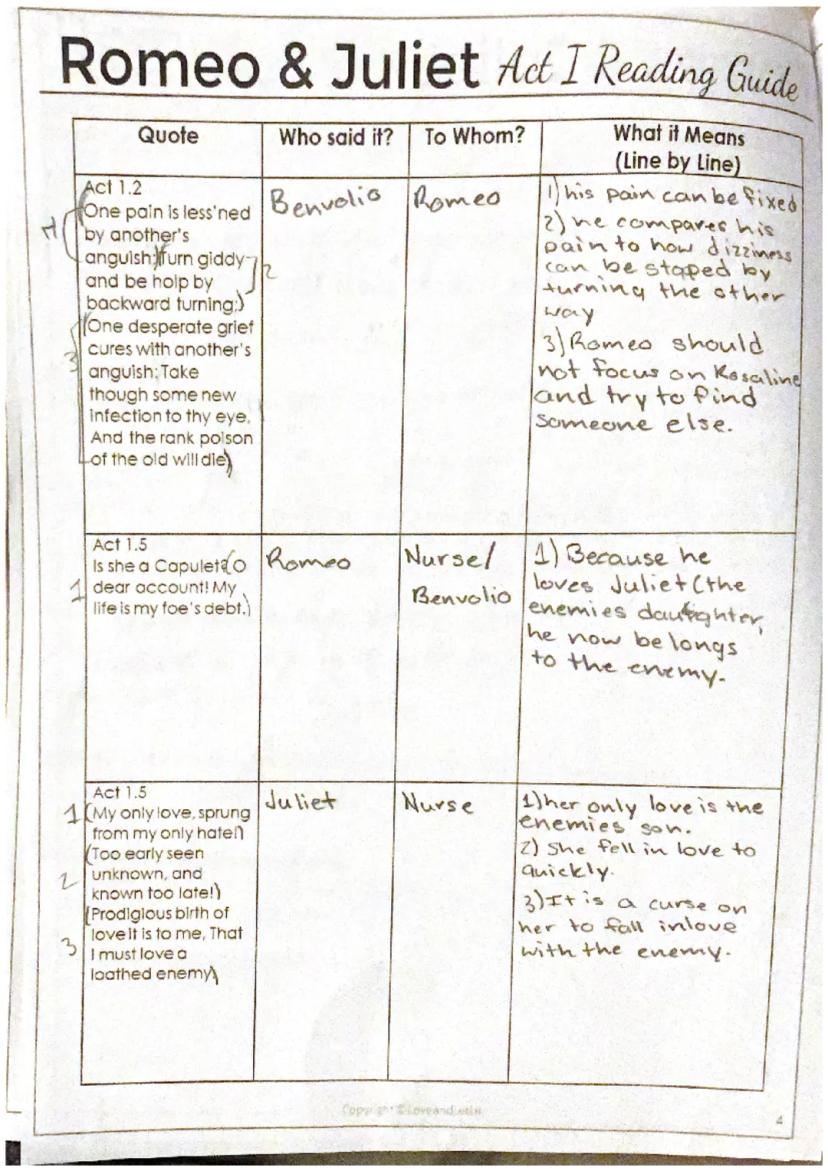 Romeo & Juliet Act I Reading Guide
Quote
Who said it?
To Whom?
What it Means
(Line by Line)
Act 1.2
(One pain is less'ned
by another's
anguish;)(Turn giddy
and be holp by
backward turning;)
(One desperate grief
cures with another's
anguish; Take
though some new
infection to thy eye,
And the rank poison
of the old will die)
1
2
3
Benvolio
Romeo
1) his pain can be fixed
2) he compares his
pain to how dizziness
can be stoped by
turning the other
way
3) Romeo should
not focus on Rosaline
and try to find
someone else.
Act 1.5
Is she a Capulet?(O
dear account! My
life is my foe's debt.)
1
Romeo
Nurse/
Benvolio
1) Because he
loves Juliet (the
enemies daughter,
he now belongs
to the enemy.
Act 1.5
1 (My only love, sprung
from my only hate!)
(Too early seen
2 unknown, and
known too late!)
(Prodigious birth of
3 love it is to me, That
I must love a
loathed enemy)
Juliet
Nurse
1) her only love is the
enemies son.
2) She fell in love to
quickly.
3) It is a curse on
her to fall inlove
with the enemy.
4